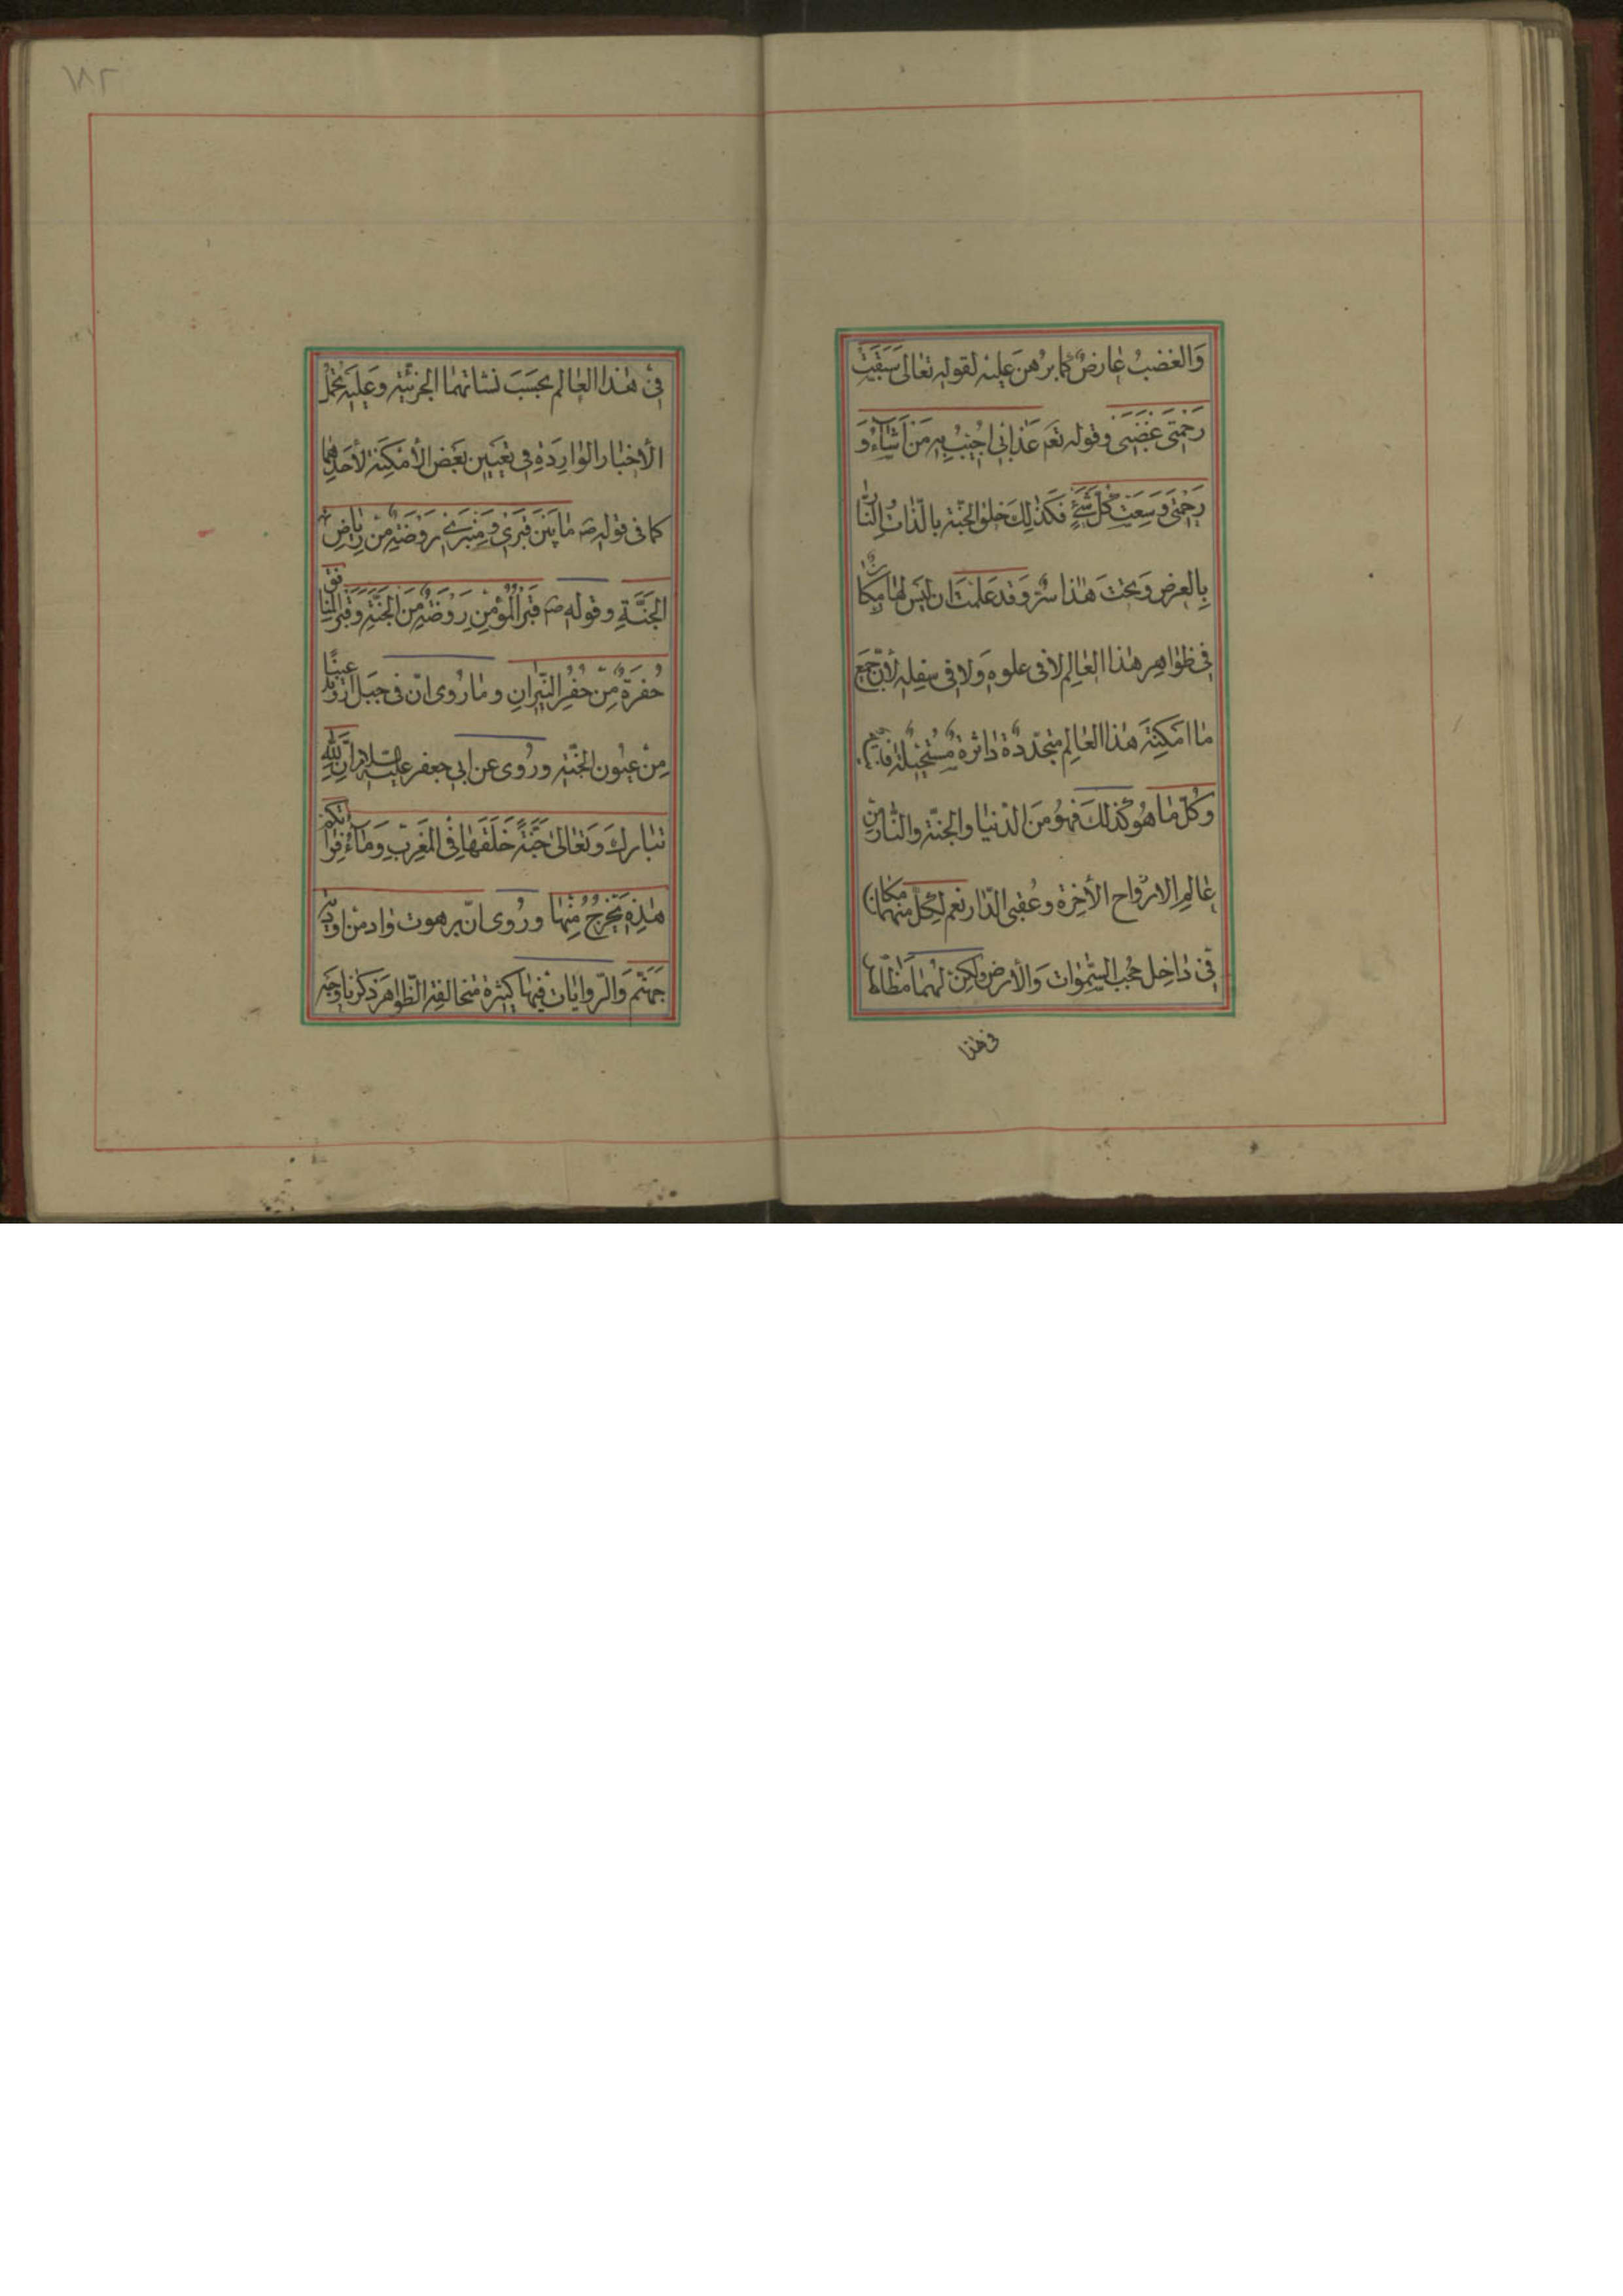 وَالغضبُ عٰارضٌ كمٰا برُهنَ عليْه لقولِه تعٰالى سَبَقَتْ
رَحْمَتى غَضَبَى وقولِه تعَم عَذٰابى اُصِيْبُ بِه مَنْ اَشٰآءُ وَ
رَحْمَتى وَسِعَتْ كُلَّ شَىْءٍ فكَذٰلِكَ خلق الجنّة بالذّات والنّار
بِالعرض وَتحْتَ هٰذا سرٌّ وَقد عَلمْتَ ان ليَس لهٰا مكٰانٌ
فى ظوٰاهِر هٰذا العٰالم لا فى علوهِ وَلا فى سفلِه لأنّ جميَع
مٰا امْكِنَة هٰذا العٰالم متجدّدةٌ دٰاثرةٌ مُسْتحْيلةٌ فٰانيةٌ
وَكُلّ مٰا هُوَ كذلكَ فهُوَ مَن الدّنْيٰا والجنّة والنّار مِنْ
عٰالم الارْوٰاح الأخِرَة وعُقبى الدّار نعم لِكلّ منهمٰا مكٰان
فى دٰاخِل حُجب السّمٰوٰات وَالأرض ولكِنْ لهُمٰا مَظٰاهر
فى هٰذا
فى هٰذا العٰالم بحَسَبَ نشاتهمٰا الجزئيّة وَعَليه يحْمل
الأخبٰار الوٰارِدَة فى تعْيين بَعَض الأمْكِنة لأحَدهِمٰا
كما فى قولِه ص مٰا بَيْنَ قبَرْى وَمِنبَرى رَوْضَةٌ مِنْ رِيٰاضِ
الجنَّة وقوله ص قبرُ المُؤْمِنِ رَوْضَةٌ مِنَ الجنَّةِ وَقبرُ المنٰافق
حُفرَةٌ مِنْ حُفَرِ النّيرٰانِ ومٰا رُوى انّ فى جبَل اروند عينًا
مِنْ عيُون الجنّة ورُوى عن ابى جعفر عليه السّلام اِنَّ لِلّٰهِ
تبٰاركَ وَتعٰالىٰ جَنَّةً خَلَقَهٰا فِى المَغْرِبِ وَمٰآءُ فرٰاتكم
هٰذِهِ يَخْرُجُ مِنْهٰا ورُوى انّ برهوت وٰاد منْ اودية
جَهَنّم وَالرّوٰايٰات فيهٰا كثيرة متخالفة الظّوٰاهر ذكرنٰا وَجه